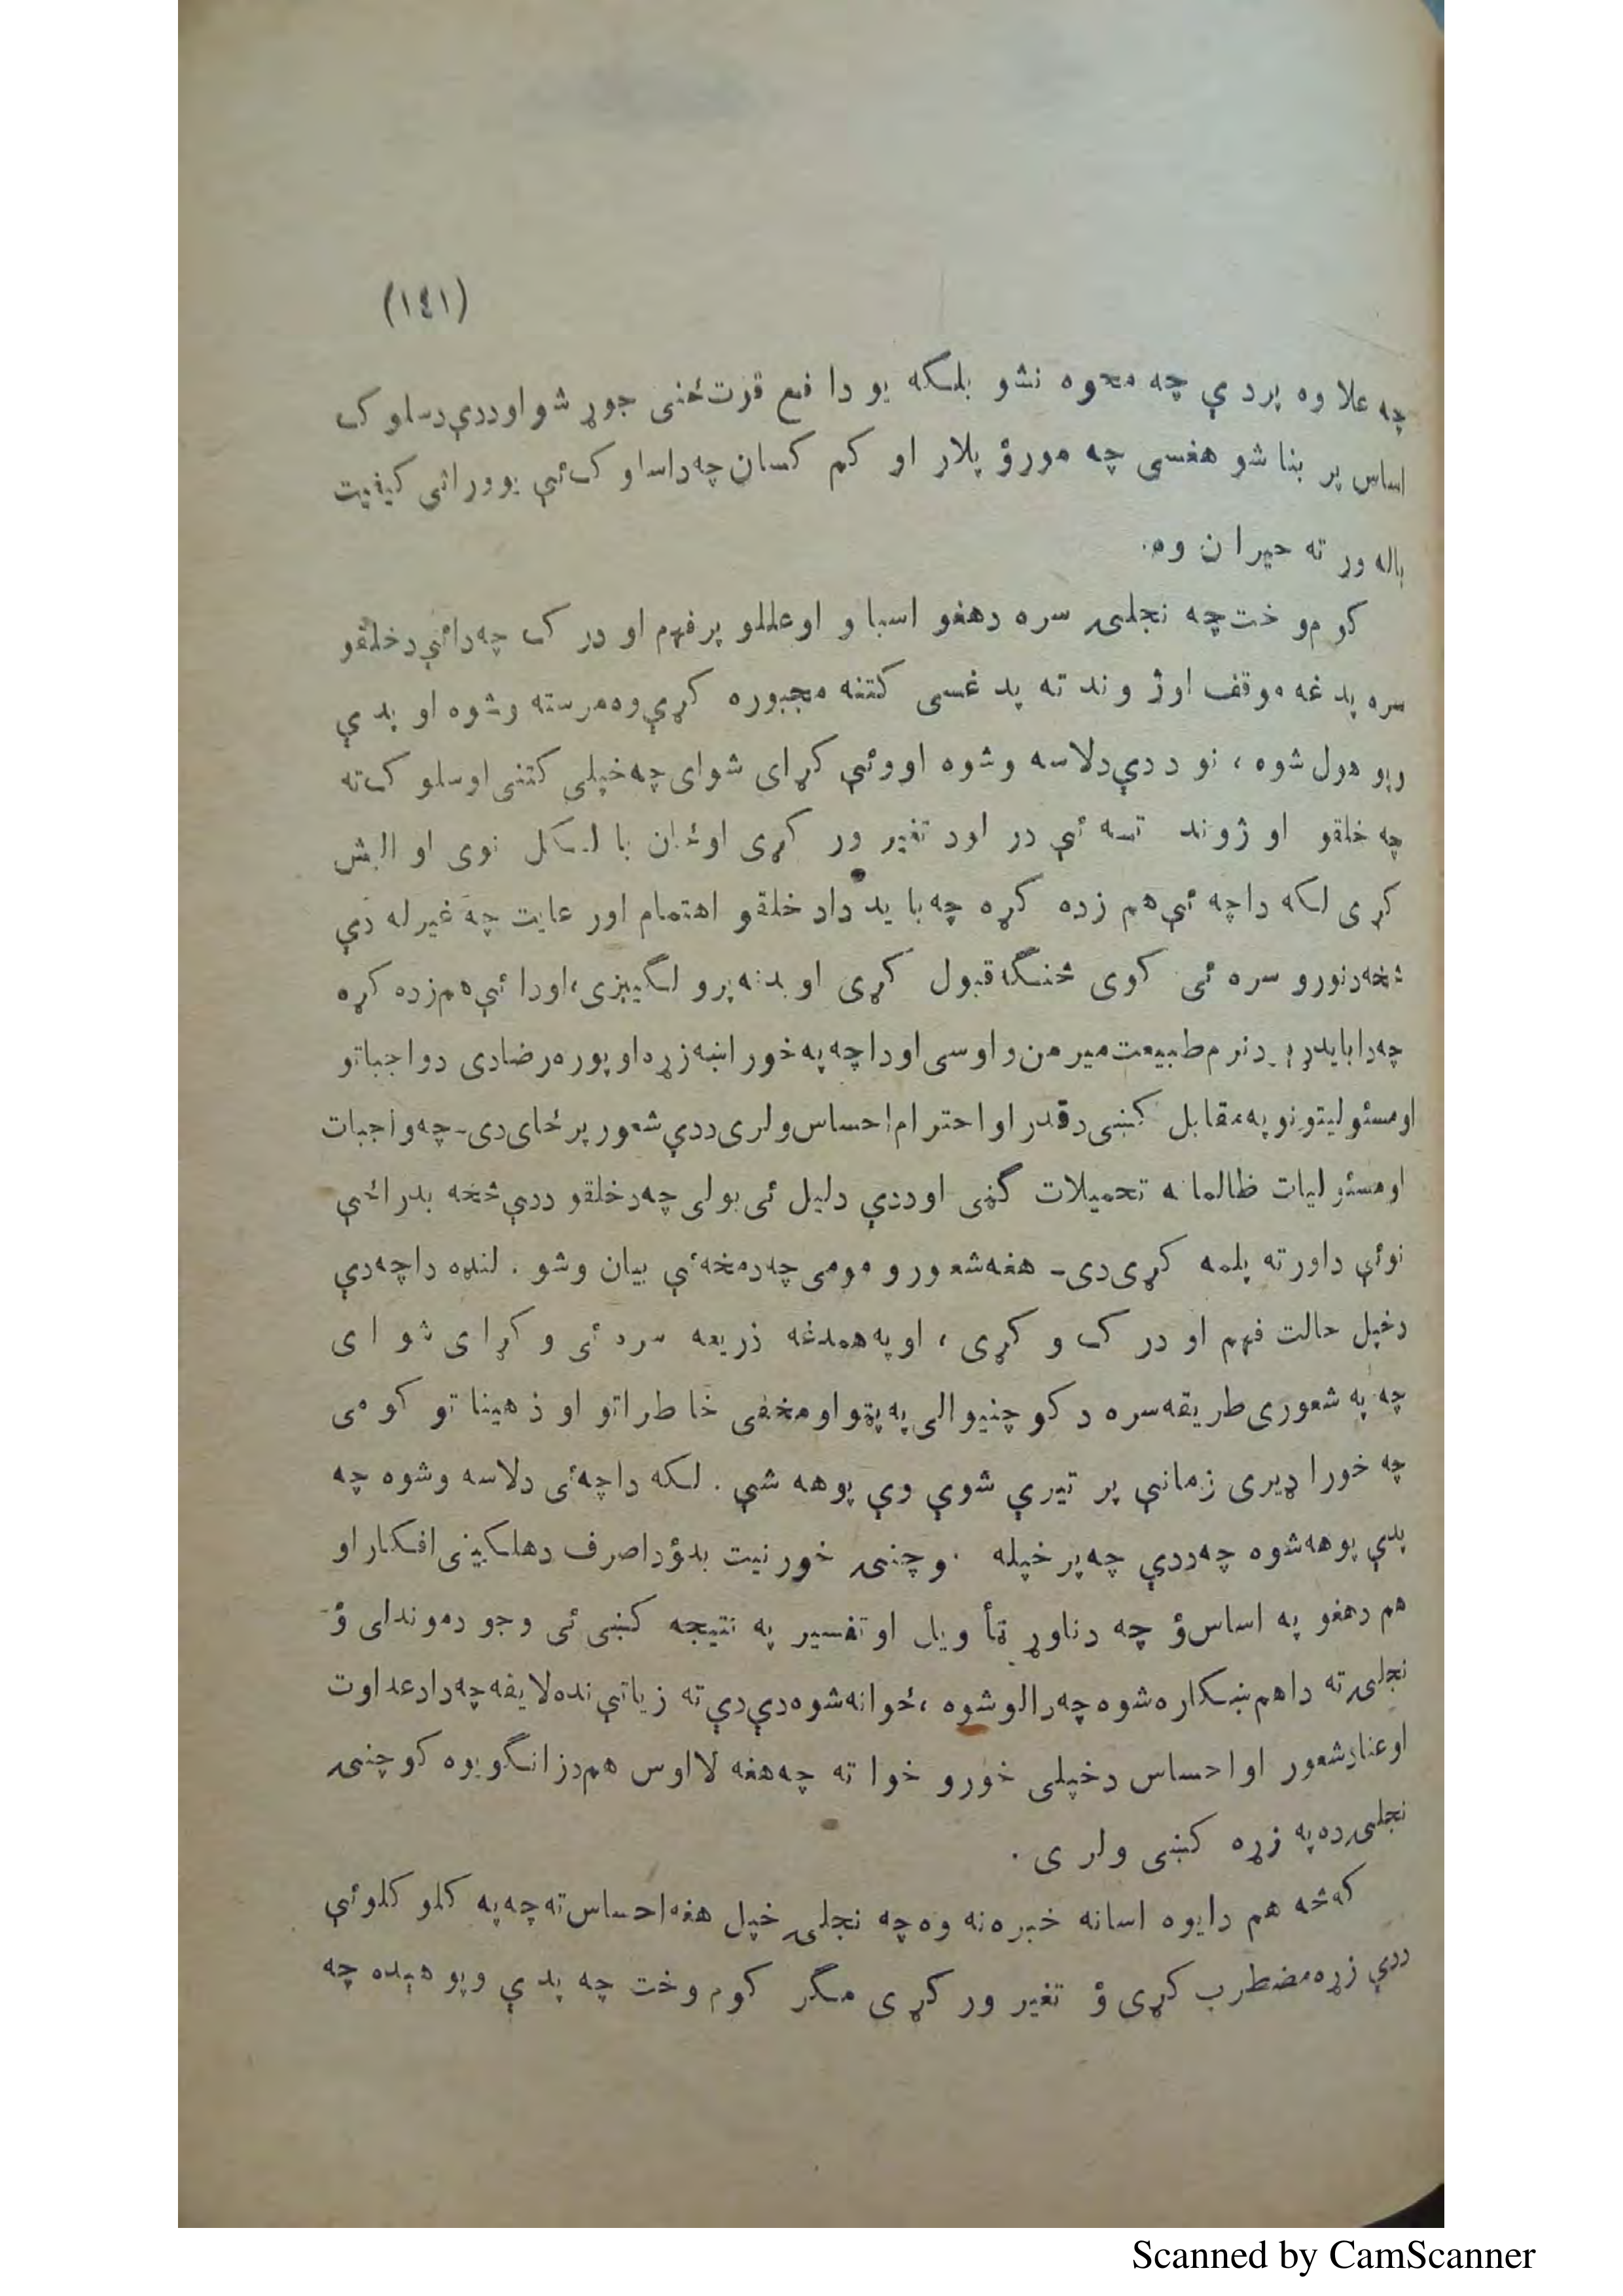 (١٤١)
چه علاوه پردې چه محوه نشو بلکه يو دافع قوت ځنی جوړ شو او ددې دسلوک
اساس پر بنا شو هغسی چه مورؤ پلار او کم کسان چه داسلوک ئې يوو راثی کيفيت
باله ور ته حيران وه.
کوم وخت چه نجلۍ سره دهغو اسبا و اوعللو پر فهم او درک چه دائې دخلقو
سره پدغه موقف اوژوند ته پدغسی کتنه مجبوره کړې وه مرسته وشوه او پدې
وپو هول شوه، نو ددې دلاسه وشوه اووئې کړای شوای چه خپلی کتنی اوسلوک ته
چه خلقو او ژوند ته ئې در لود تغير ور کړی اوځان با لکل نوی او البش
کړی لکه داچه ئې هم زده کړه چه بايد داد خلقو اهتمام اور عايت چه غير له دې
څخه دنورو سره ئی کوی څنګه قبول کړی او بدنه پرو لګيږی، اودا ئې هم زده کړه
چه دابايد د نرم طبيعت ميرمن واوسی اوداچه په خورا ښه زړه او پوره رضادی دواجباتو
اومسئوليتونو په مقابل کښی دقدر او احترام احساس ولری ددې شعور پر ځای دی۔ چه واجبات
اومسئوليات ظالمانه تحميلات ګڼی اوددې دليل ئی بولی چه دخلقو ددې څخه بدراځې
نوئې داورته پلمه کړی دی۔ هغه شعور و مومی چه دمخه ئې بيان وشو. لنډه داچه دې
دخپل حالت فهم او درک و کړی، اوپه همدغه ذريعه سره ئی و کړای شو ای
چه په شعوری طريقه سره د کوچنيوالی په پټو اومخفی خاطراتو او ذهيناتو کومی
چه خورا ډيری زمانې پر تيرې شوې وې پوهه شې. لکه داچه ئی دلاسه وشوه چه
پدې پوهه شوه چه ددې چه پر خپله کوچنۍ خور نيت بدؤ داصرف دهلکينی افکار او
هم دهغو په اساس ؤ چه دناوړ تأ ويل او تفسير په نتيجه کښی ئی وجود موندلی ؤ
نجلۍ ته داهم ښکاره شوه چه رالوشوه، ځوانه شوه دې دې ته زياتې نده لايقه چه داد عداوت
اوعناد شعور او احساس دخپلی خورو خوا ته چه هغه لااوس هم دزانګو يوه کوچنۍ
نجلۍ ده په زړه کښی ولر ی.
که څه هم دايوه اسانه خبره نه وه چه نجلۍ خپل هغه احساس ته چه په کلو کلوئې
ددې زړه مضطرب کړی ؤ تغير ور کړی مګر کوم وخت چه پدې وپوهېده چه
Scanned by CamScanner